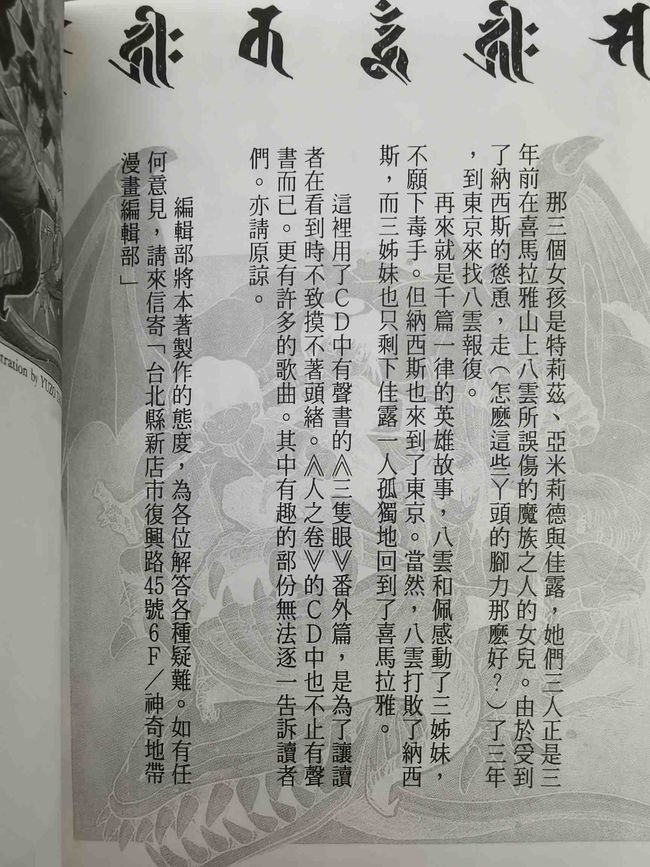 那三個女孩是特莉茲、亞米莉德與佳露，她們三人正是三
年前在喜馬拉雅山上八雲所誤傷的魔族之人的女兒。由於受到
了納西斯的慫恿，走（怎麼這些丫頭的腳力那麼好？）了三年
，到東京來找八雲報復。
再來就是千篇一律的英雄故事，八雲和佩感動了三姊妹，
不願下毒手。但納西斯也來到了東京。當然，八雲打敗了納西
斯，而三姊妹也只剩下佳露一人孤獨地回到了喜馬拉雅。
這裡用了CD中有聲書的《三隻眼》番外篇，是為了讓讀
者在看到時不致摸不著頭緒。《人之卷》的CD中也不止有聲
書而已。更有許多的歌曲。其中有趣的部份無法逐一告訴讀者
們。亦請原諒。
編輯部將本著製作的態度，為各位解答各種疑難。如有任
何意見，請來信寄「台北縣新店市復興路45號6F／神奇地帶
漫畫編輯部」
tration by YUZO